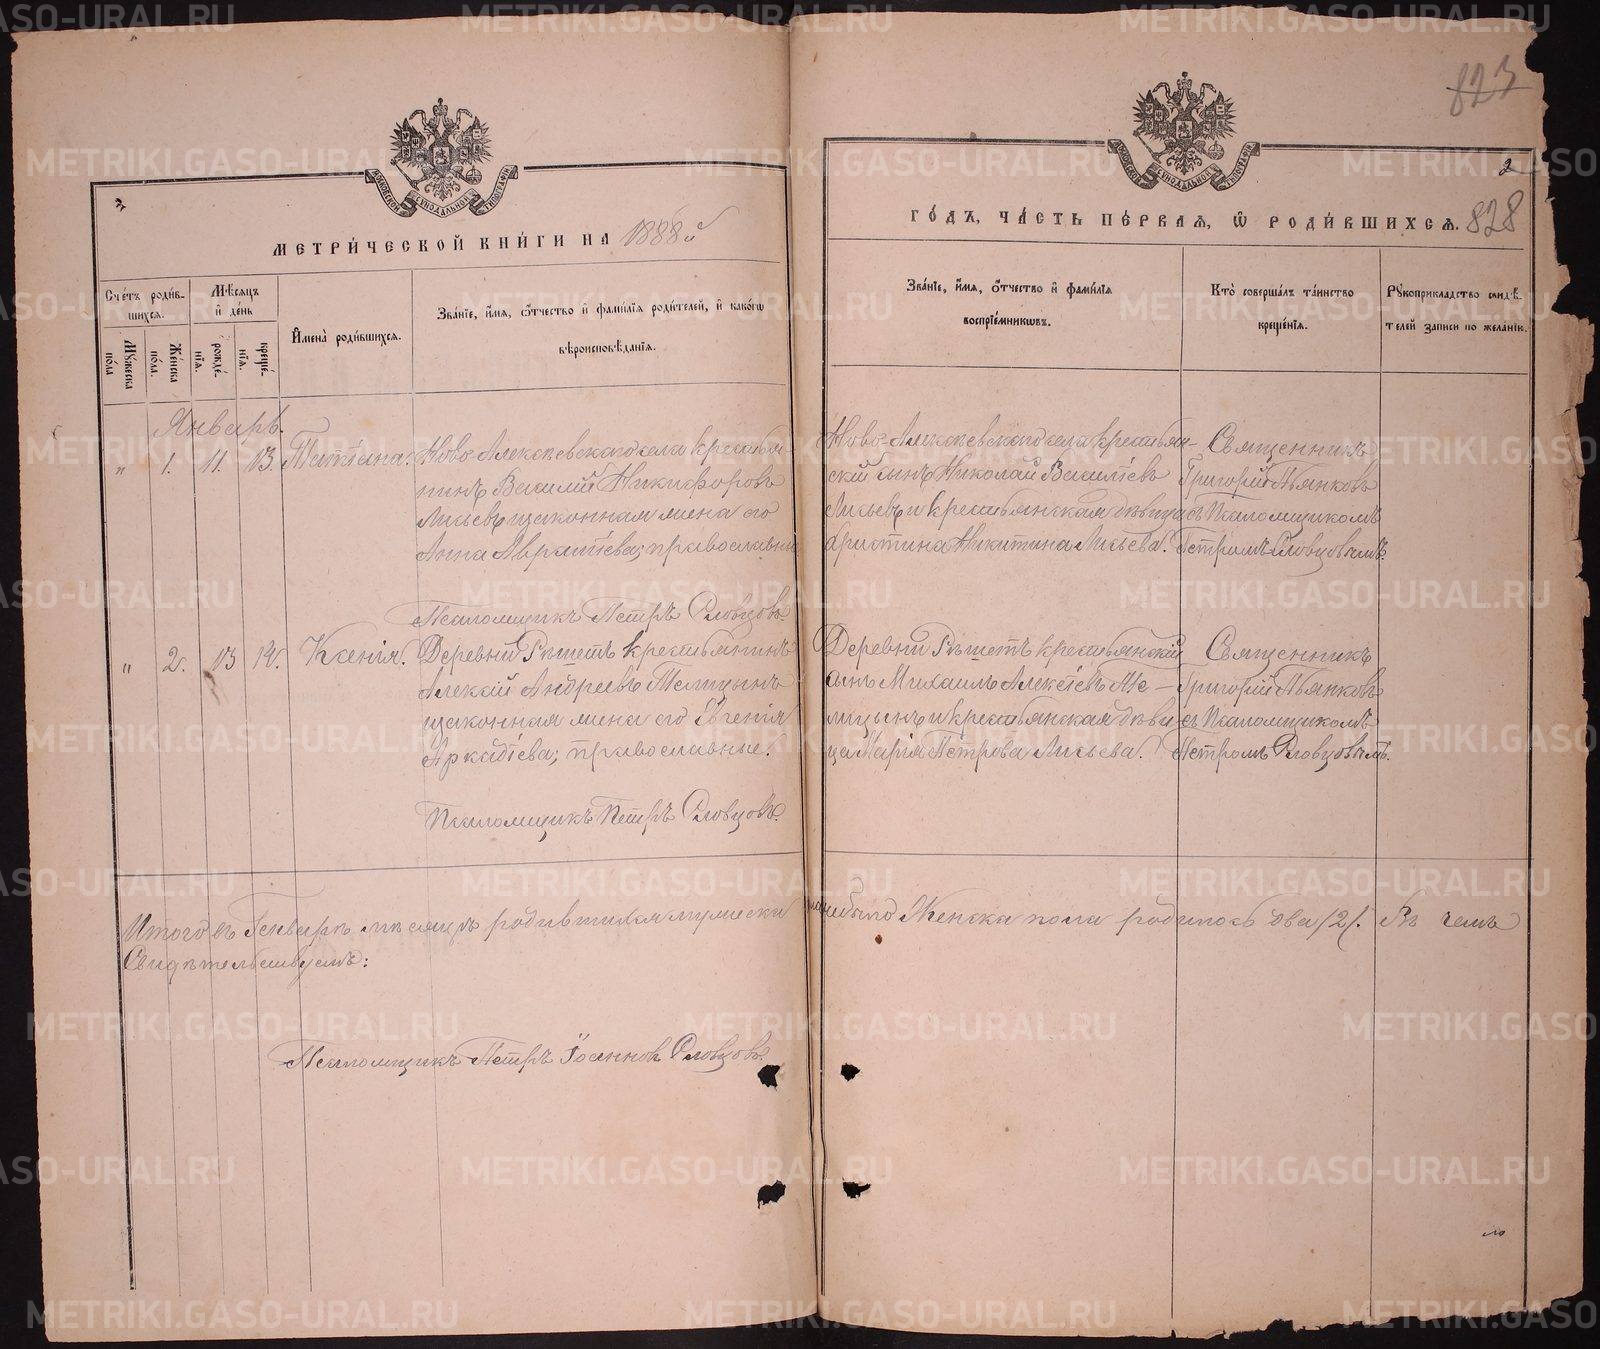 823
2
МЕТРИ́ЧЕСКОЙ КНИ́ГИ НА 1888й
ГО́ДЪ, ЧА́СТЬ ПЕ́РВАЯ, Ѿ РОДИ́ВШИХСЯ. 828
Сче́тъ роди́в-
шихся.
Мꙋжеска
по́ла
Же́нска
по́ла.
Мѣ́сяцъ
и҆ де́нь
рожде́-
нїѧ.
креще́-
нїѧ.
И҆мена̀ роди́вшихся.
Зва́нїе, и҆́мѧ, ѻ҆́тчество и҆ фами́лїѧ роди́телей, и҆ како́гѡ
вѣроисповѣ́данїѧ.
Зва́нїе, и҆́мѧ, ѻ҆́тчество и҆ фами́лїѧ
воспрїе́мникѡвъ.
Кто̀ соверша́лъ та́инство
креще́нїѧ.
Рꙋкоприкладство свидѣ́-
телей записи по жела́нїю.
Январь.
" 1. 11. 13. Татіана. Ново-Алексѣевскаго села крестья-
нинъ Василій Никифоровъ
Лисьевъ и законная жена его
Анна ; православны
Псаломщикъ Петръ Словцовъ.
Ново-Алексѣевскаго села крестьян-
скій сынъ Николай Василіевъ
Лисьевъ и крестьянская дѣвица
Христина Никитина Лисьева.
Священникъ
Григорій Пьянковъ
съ Псаломщикомъ
Петромъ Словцовымъ.
" 2. 13 14. Ксенія. Деревни Рѣшетъ крестьянинъ
Алексій Андреевъ Телицынъ
законная жена его Евгенія
Аркадіева; православные.
Псаломщикъ Петръ Словцовъ.
Деревни Рѣшетъ крестьянскій
сынъ Михаилъ Алексѣевъ Те-
лицынъ и крестьянская дѣви-
ца Марія Петрова Лисьева.
Священникъ
Григорій Пьянковъ
съ Псаломщикомъ
Петромъ Словцовымъ.
Итого въ Генварѣ мѣсяцѣ родившихся мужеска пола небыло Женска пола родилось два /2/. Въ чемъ
Свидѣтельствуемъ:
Псаломщикъ Петръ Іоанновъ Словцовъ.
METRIKI.GASO-URAL.RU